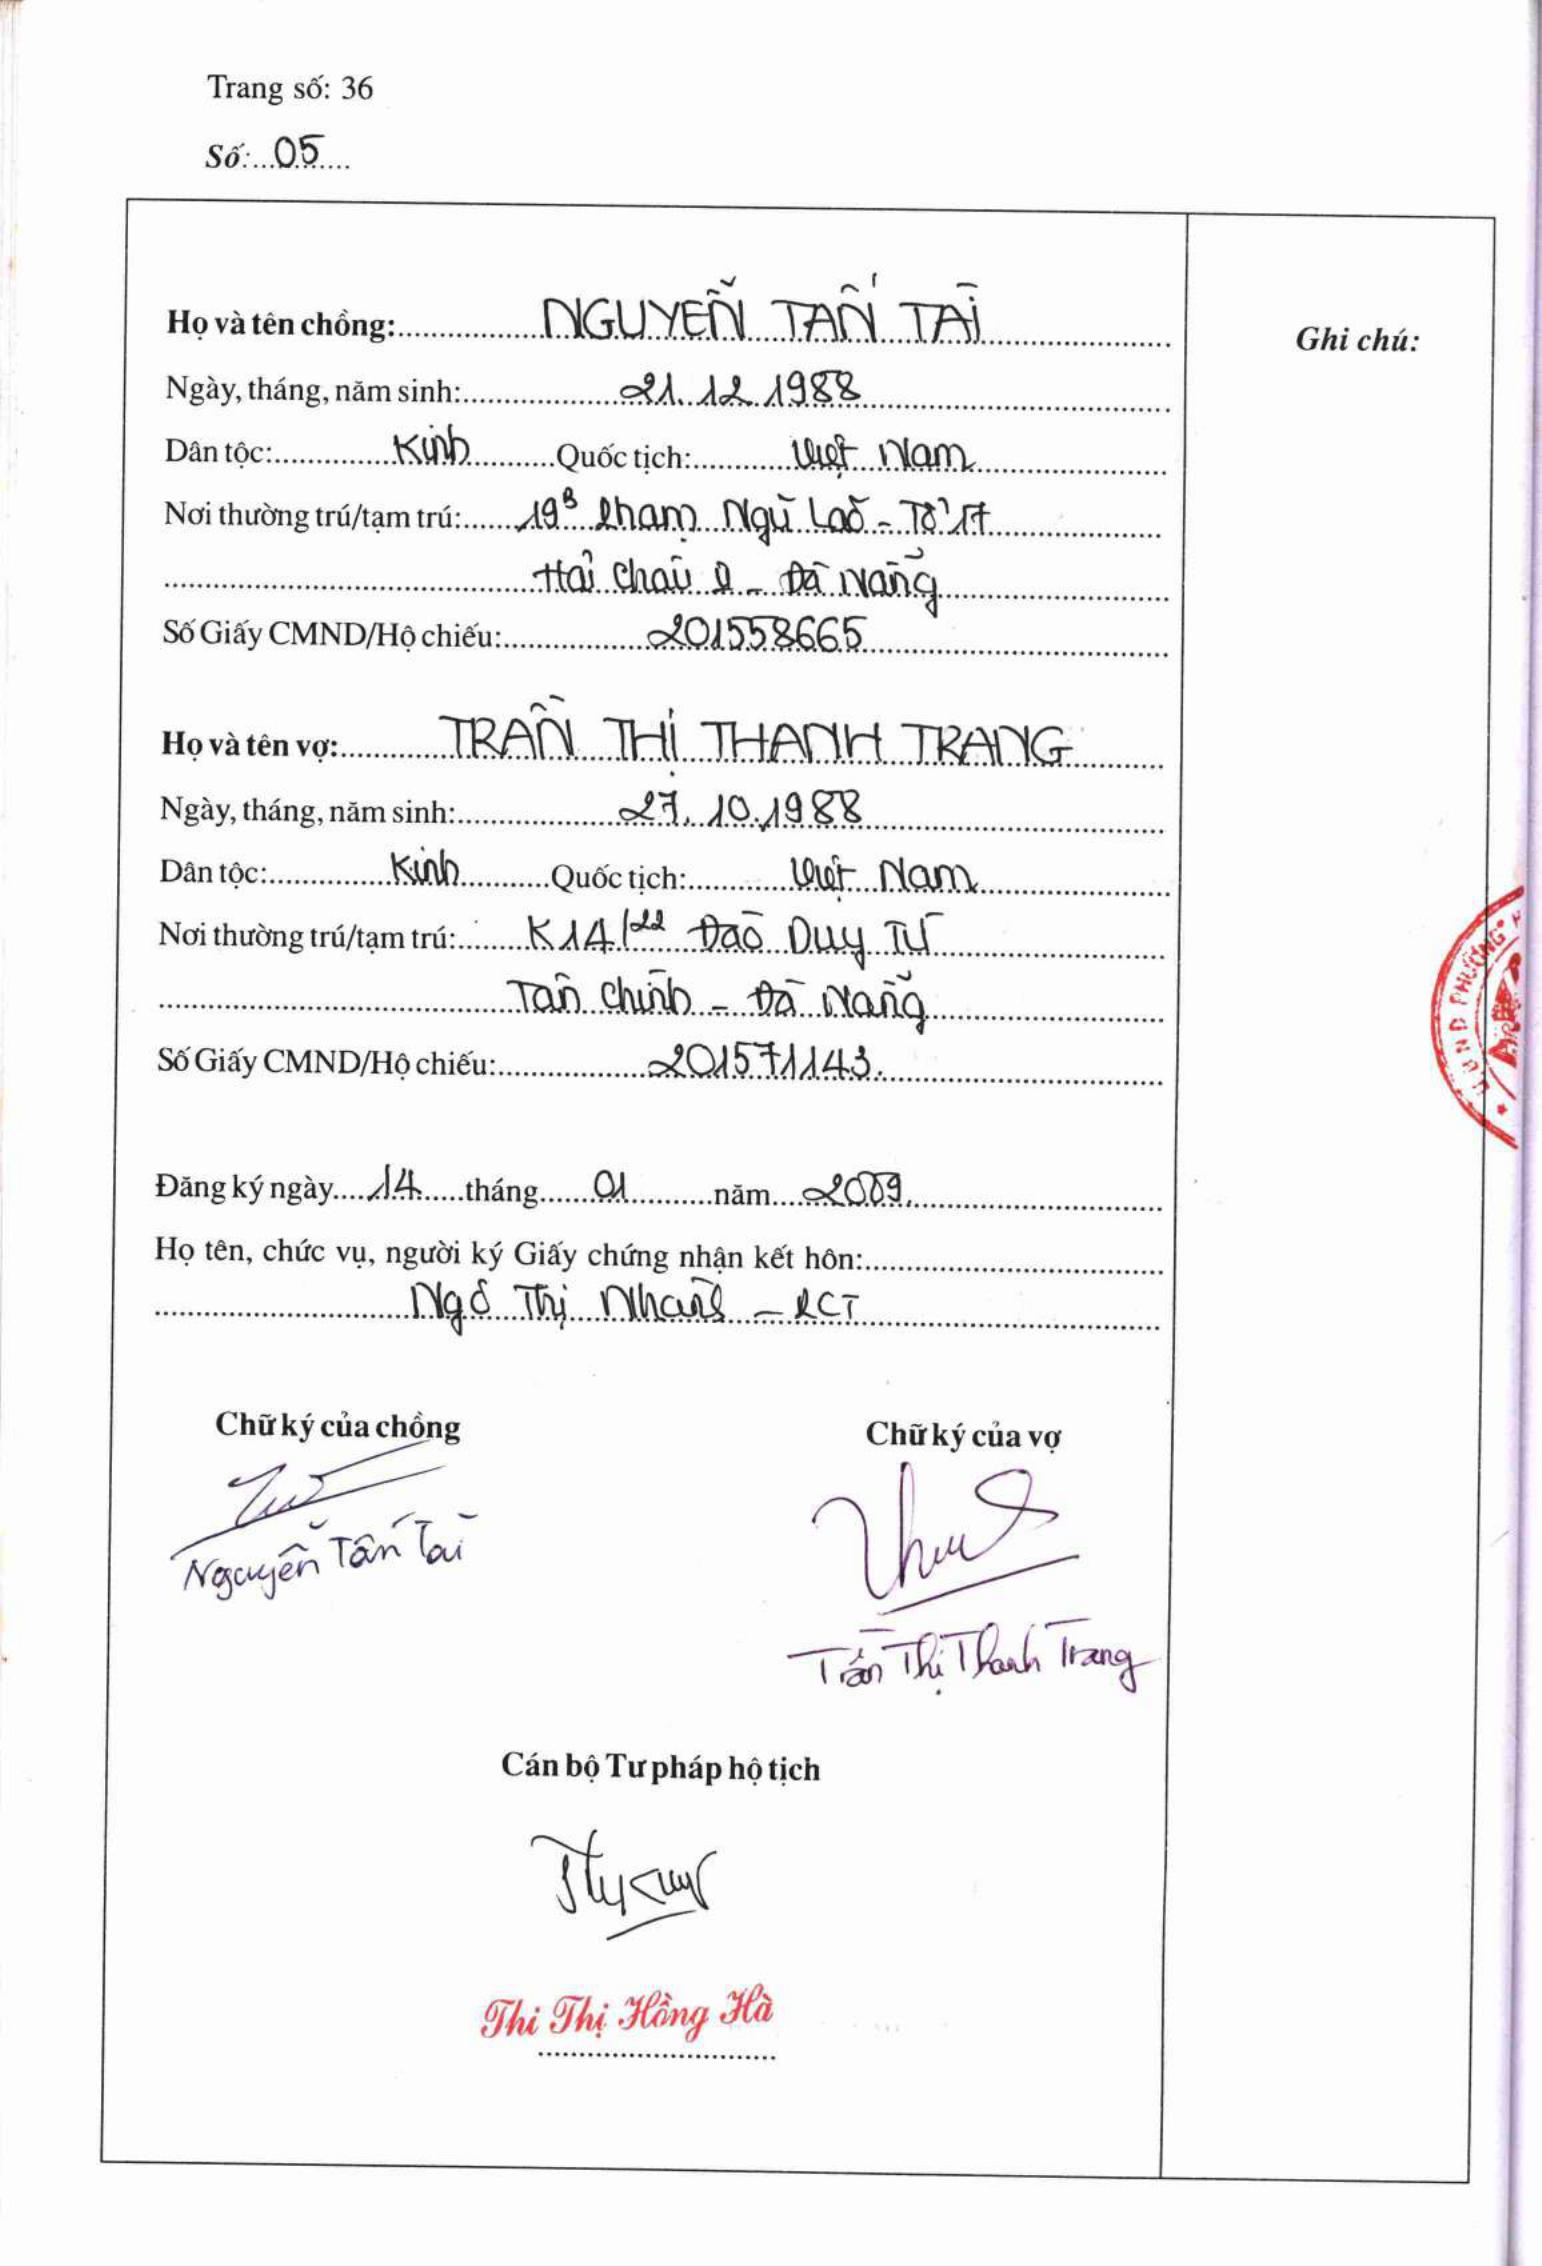 Trang số: 36
Số: 05
Họ và tên chồng: NGUYỄN TẤN TÀI
Ghi chú:
Ngày, tháng, năm sinh: 21.12.1988
Dân tộc: Kinh Quốc tịch: Việt Nam
Nơi thường trú/tạm trú: 19B Phạm Ngũ Lão - Tổ 17
Hải Châu I - Đà Nẵng
Số Giấy CMND/Hộ chiếu: 201558665
Họ và tên vợ: TRẦN THỊ THANH TRANG
Ngày, tháng, năm sinh: 27.10.1988
Dân tộc: Kinh Quốc tịch: Việt Nam
Nơi thường trú/tạm trú: K14/22 Đào Duy Từ
Tân Chính - Đà Nẵng
Số Giấy CMND/Hộ chiếu: 201571143.
U.B.N.D PHƯỜNG
Đăng ký ngày 14 tháng 01 năm 2009.
Họ tên, chức vụ, người ký Giấy chứng nhận kết hôn:
Ngô Thị Nhạn - PCT
Chữ ký của chồng
Chữ ký của vợ
Nguyễn Tấn Tài
Trần Thị Thanh Trang
Cán bộ Tư pháp hộ tịch
Thi Thị Hồng Hà